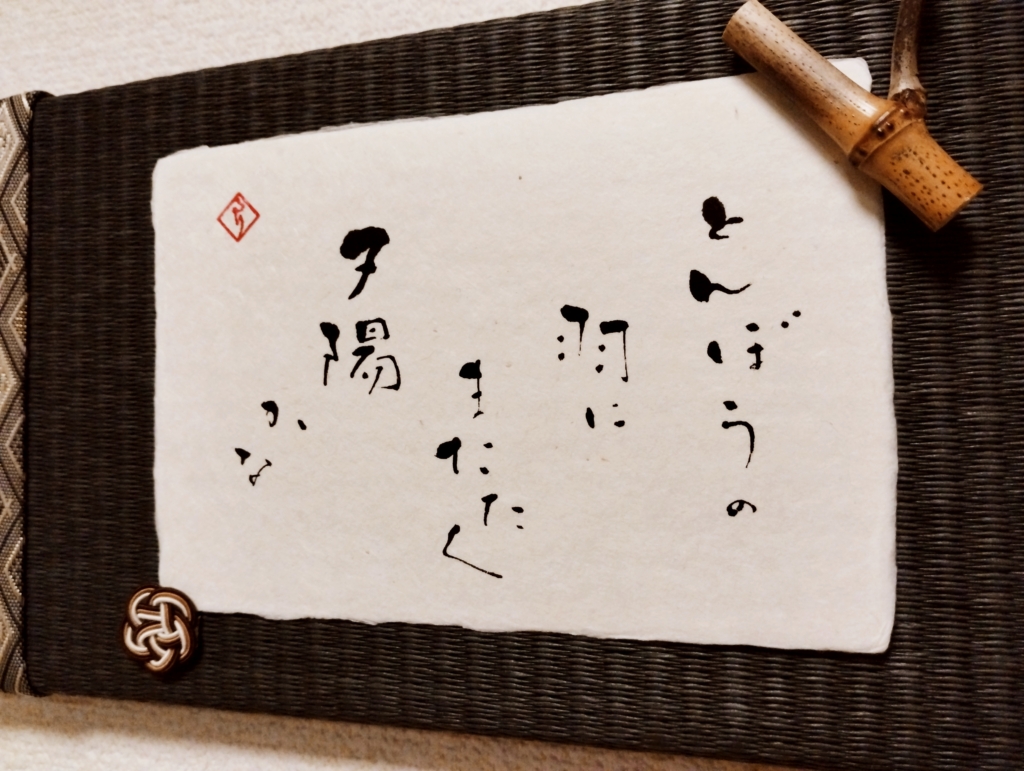 とんぼうの
羽に
またたく
夕陽
かな